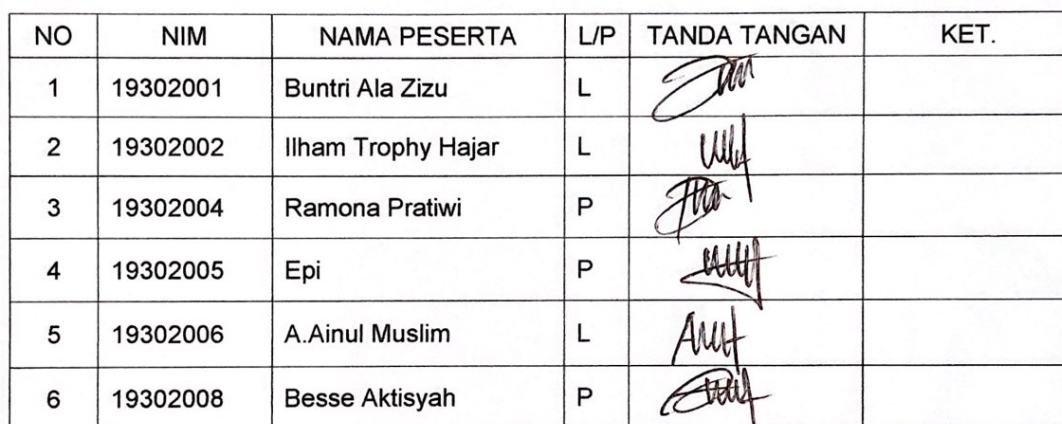 NO NIM NAMA PESERTA L/P TANDA TANGAN KET.
1 19302001 Buntri Ala Zizu L
2 19302002 Ilham Trophy Hajar L
3 19302004 Ramona Pratiwi P
4 19302005 Epi P
5 19302006 A.Ainul Muslim L
6 19302008 Besse Aktisyah P